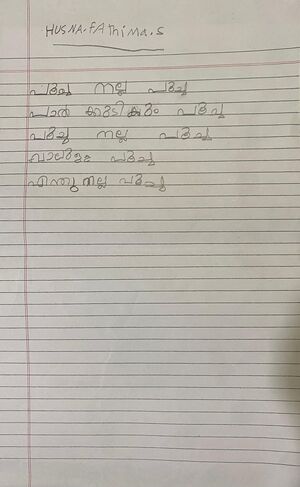 HUSNA.FAthiMa.S
പൂച്ച നല്ല പൂച്ച
പാൽ കുടിക്കും പൂച്ച
പൂച്ച നല്ല പൂച്ച
വാലുള്ള പൂച്ച
എന്തു നല്ല പൂച്ച